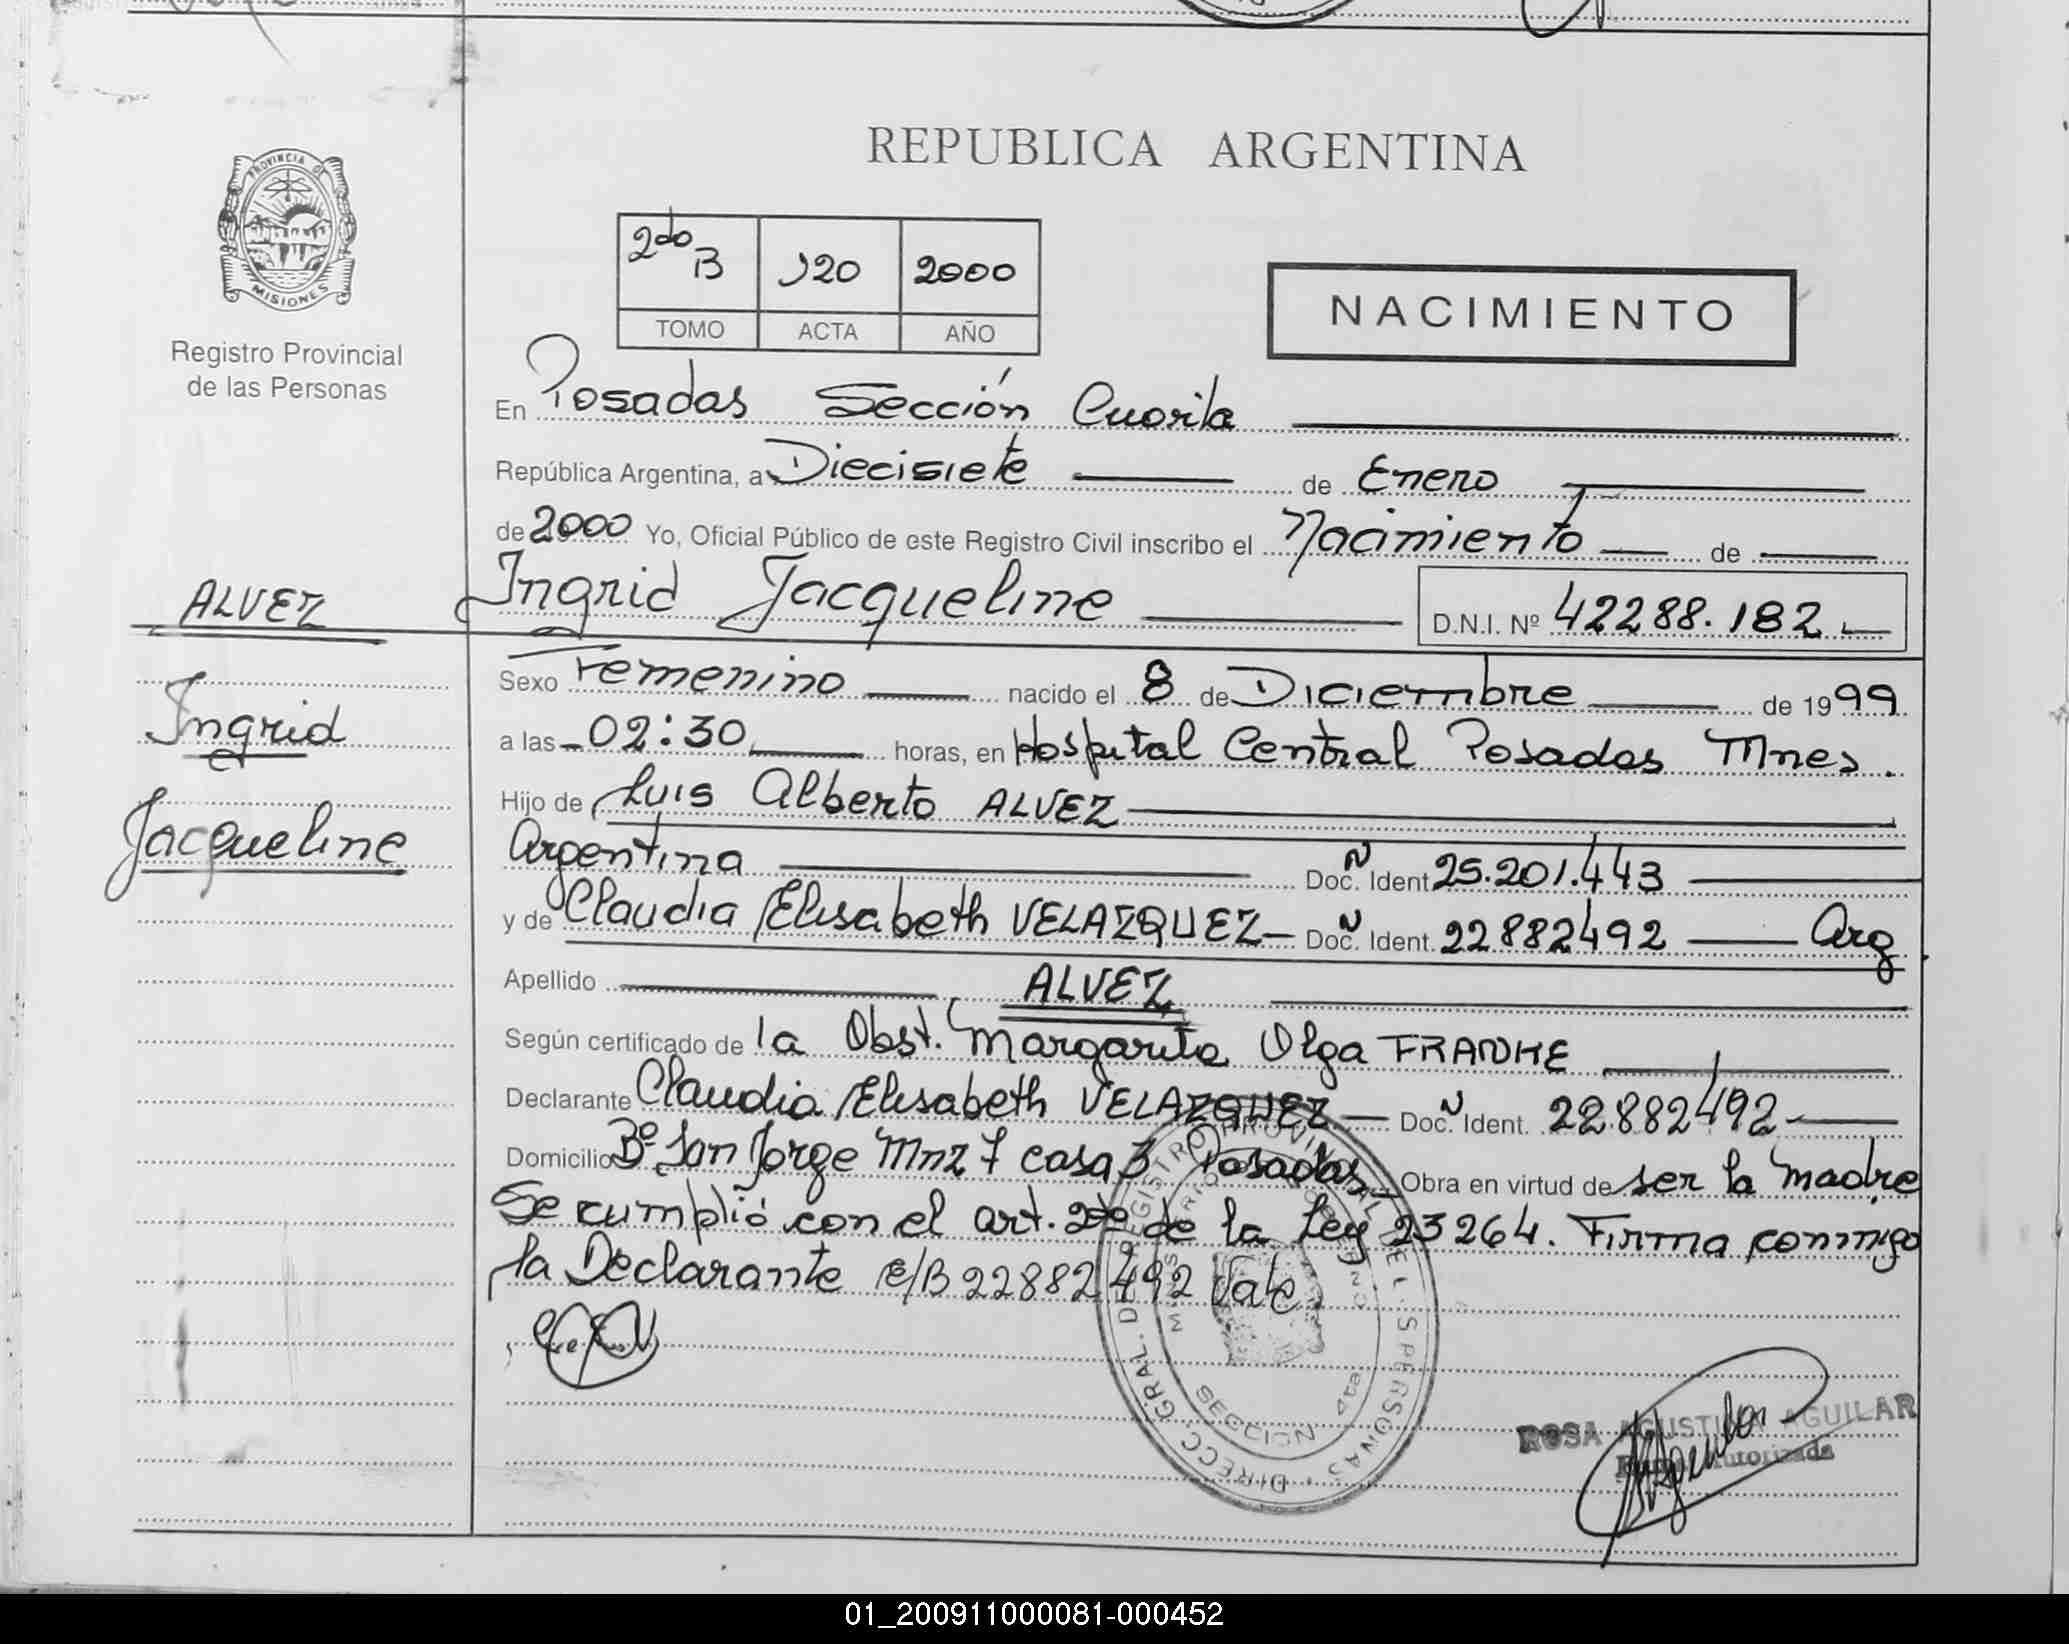 REPUBLICA ARGENTINA
PROVINCIA DE MISIONES
Registro Provincial
de las Personas
2do B 120 2000
TOMO ACTA AÑO
NACIMIENTO
En Posadas Sección Cuarta
República Argentina, a Diecisiete de Enero
de 2000 Yo, Oficial Público de este Registro Civil inscribo el Nacimiento de
Ingrid Jacqueline D.N.I. Nº 42288.182
ALVEZ
Ingrid
Jacqueline
Sexo Femenino nacido el 8 de Diciembre de 1999
a las 02:30 horas, en Hospital Central Posadas Mnes.
Hijo de Luis Alberto ALVEZ
Argentina Doc. Ident. Nº 25.201.443
y de Claudia Elisabeth VELAZQUEZ Doc. Ident. Nº 22882492 Arg.
Apellido ALVEZ
Según certificado de la Obst. Margarita Olga FRANKE
Declarante Claudia Elisabeth VELAZQUEZ Doc. Ident. Nº 22.882492
Domicilio Bº San Jorge Mnz 7 casa 3 Posadas Obra en virtud de ser la madre
Se cumplió con el art. 2do de la Ley 23264. Firma conmigo
la Declarante e/B 22882492 Vale.
DIRECC. GRAL. DE REGISTRO PROVINCIAL DE LAS PERSONAS
MINISTERIO DE GOBIERNO
SECCION 4ta
ROSA AGUSTINA AGUILAR
Firma Autorizada
01_200911000081-000452